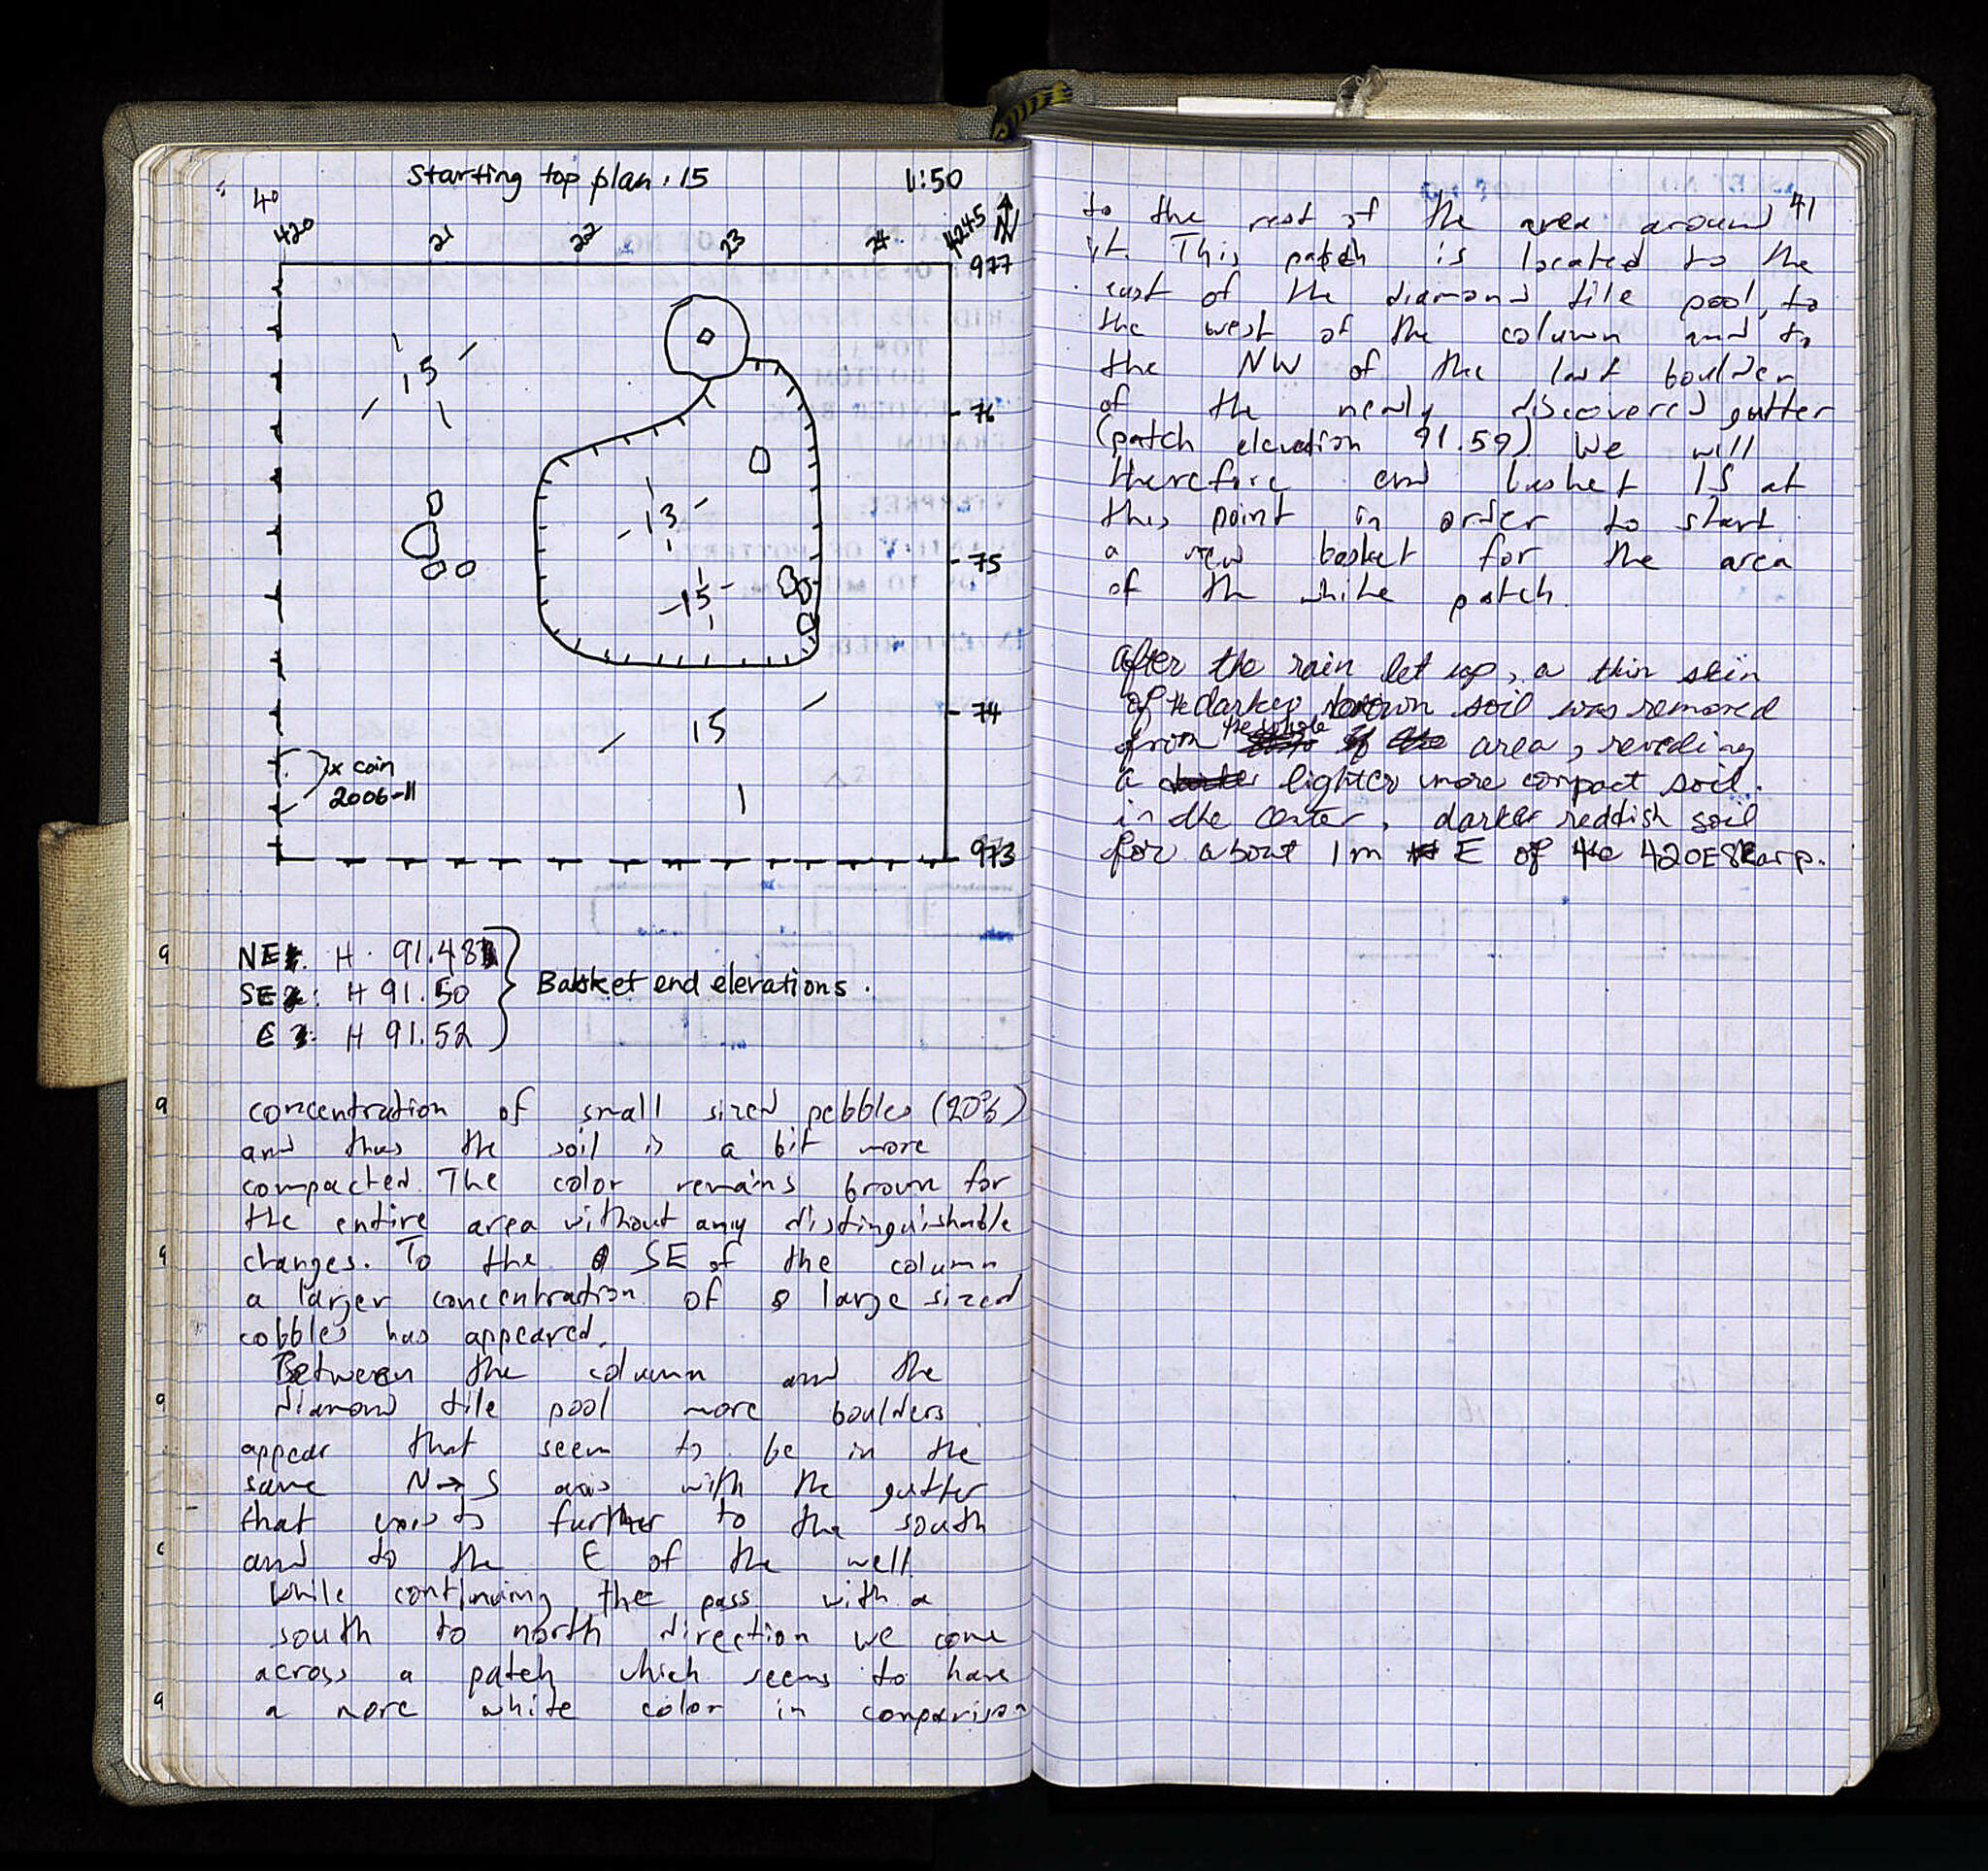 40
Starting top plan: 15
1:50
420
21
22
23
24
424.5
N
977
15
76
13
75
15
74
15
x coin
2006-11
973
NE: H 91.48
SE: H 91.50
C: H 91.52
Basket end elevations.
concentration of small sized pebbles (20%)
and thus the soil is a bit more
compacted. The color remains brown for
the entire area without any distinguishable
changes. To the SE of the column
a larger concentration of large sized
cobbles has appeared.
Between the column and the
diamond tile pool more boulders
appear that seem to be in the
same N→S axis with the gutter
that exists further to the south
and to the E of the well.
While continuing the pass with a
south to north direction we come
across a patch which seems to have
a more white color in comparison
41
to the rest of the area around
it. This patch is located to the
east of the diamond tile pool, to
the west of the column and to
the NW of the last boulder
of the newly discovered gutter
(patch elevation 91.59). We will
therefore end basket 15 at
this point in order to start
a new basket for the area
of the white patch.
after the rain let up, a thin skin
of the darker brown soil was removed
from the whole area, revealing
a lighter more compact soil.
in the center, darker reddish soil
for about 1m E of the 420E Skarp.